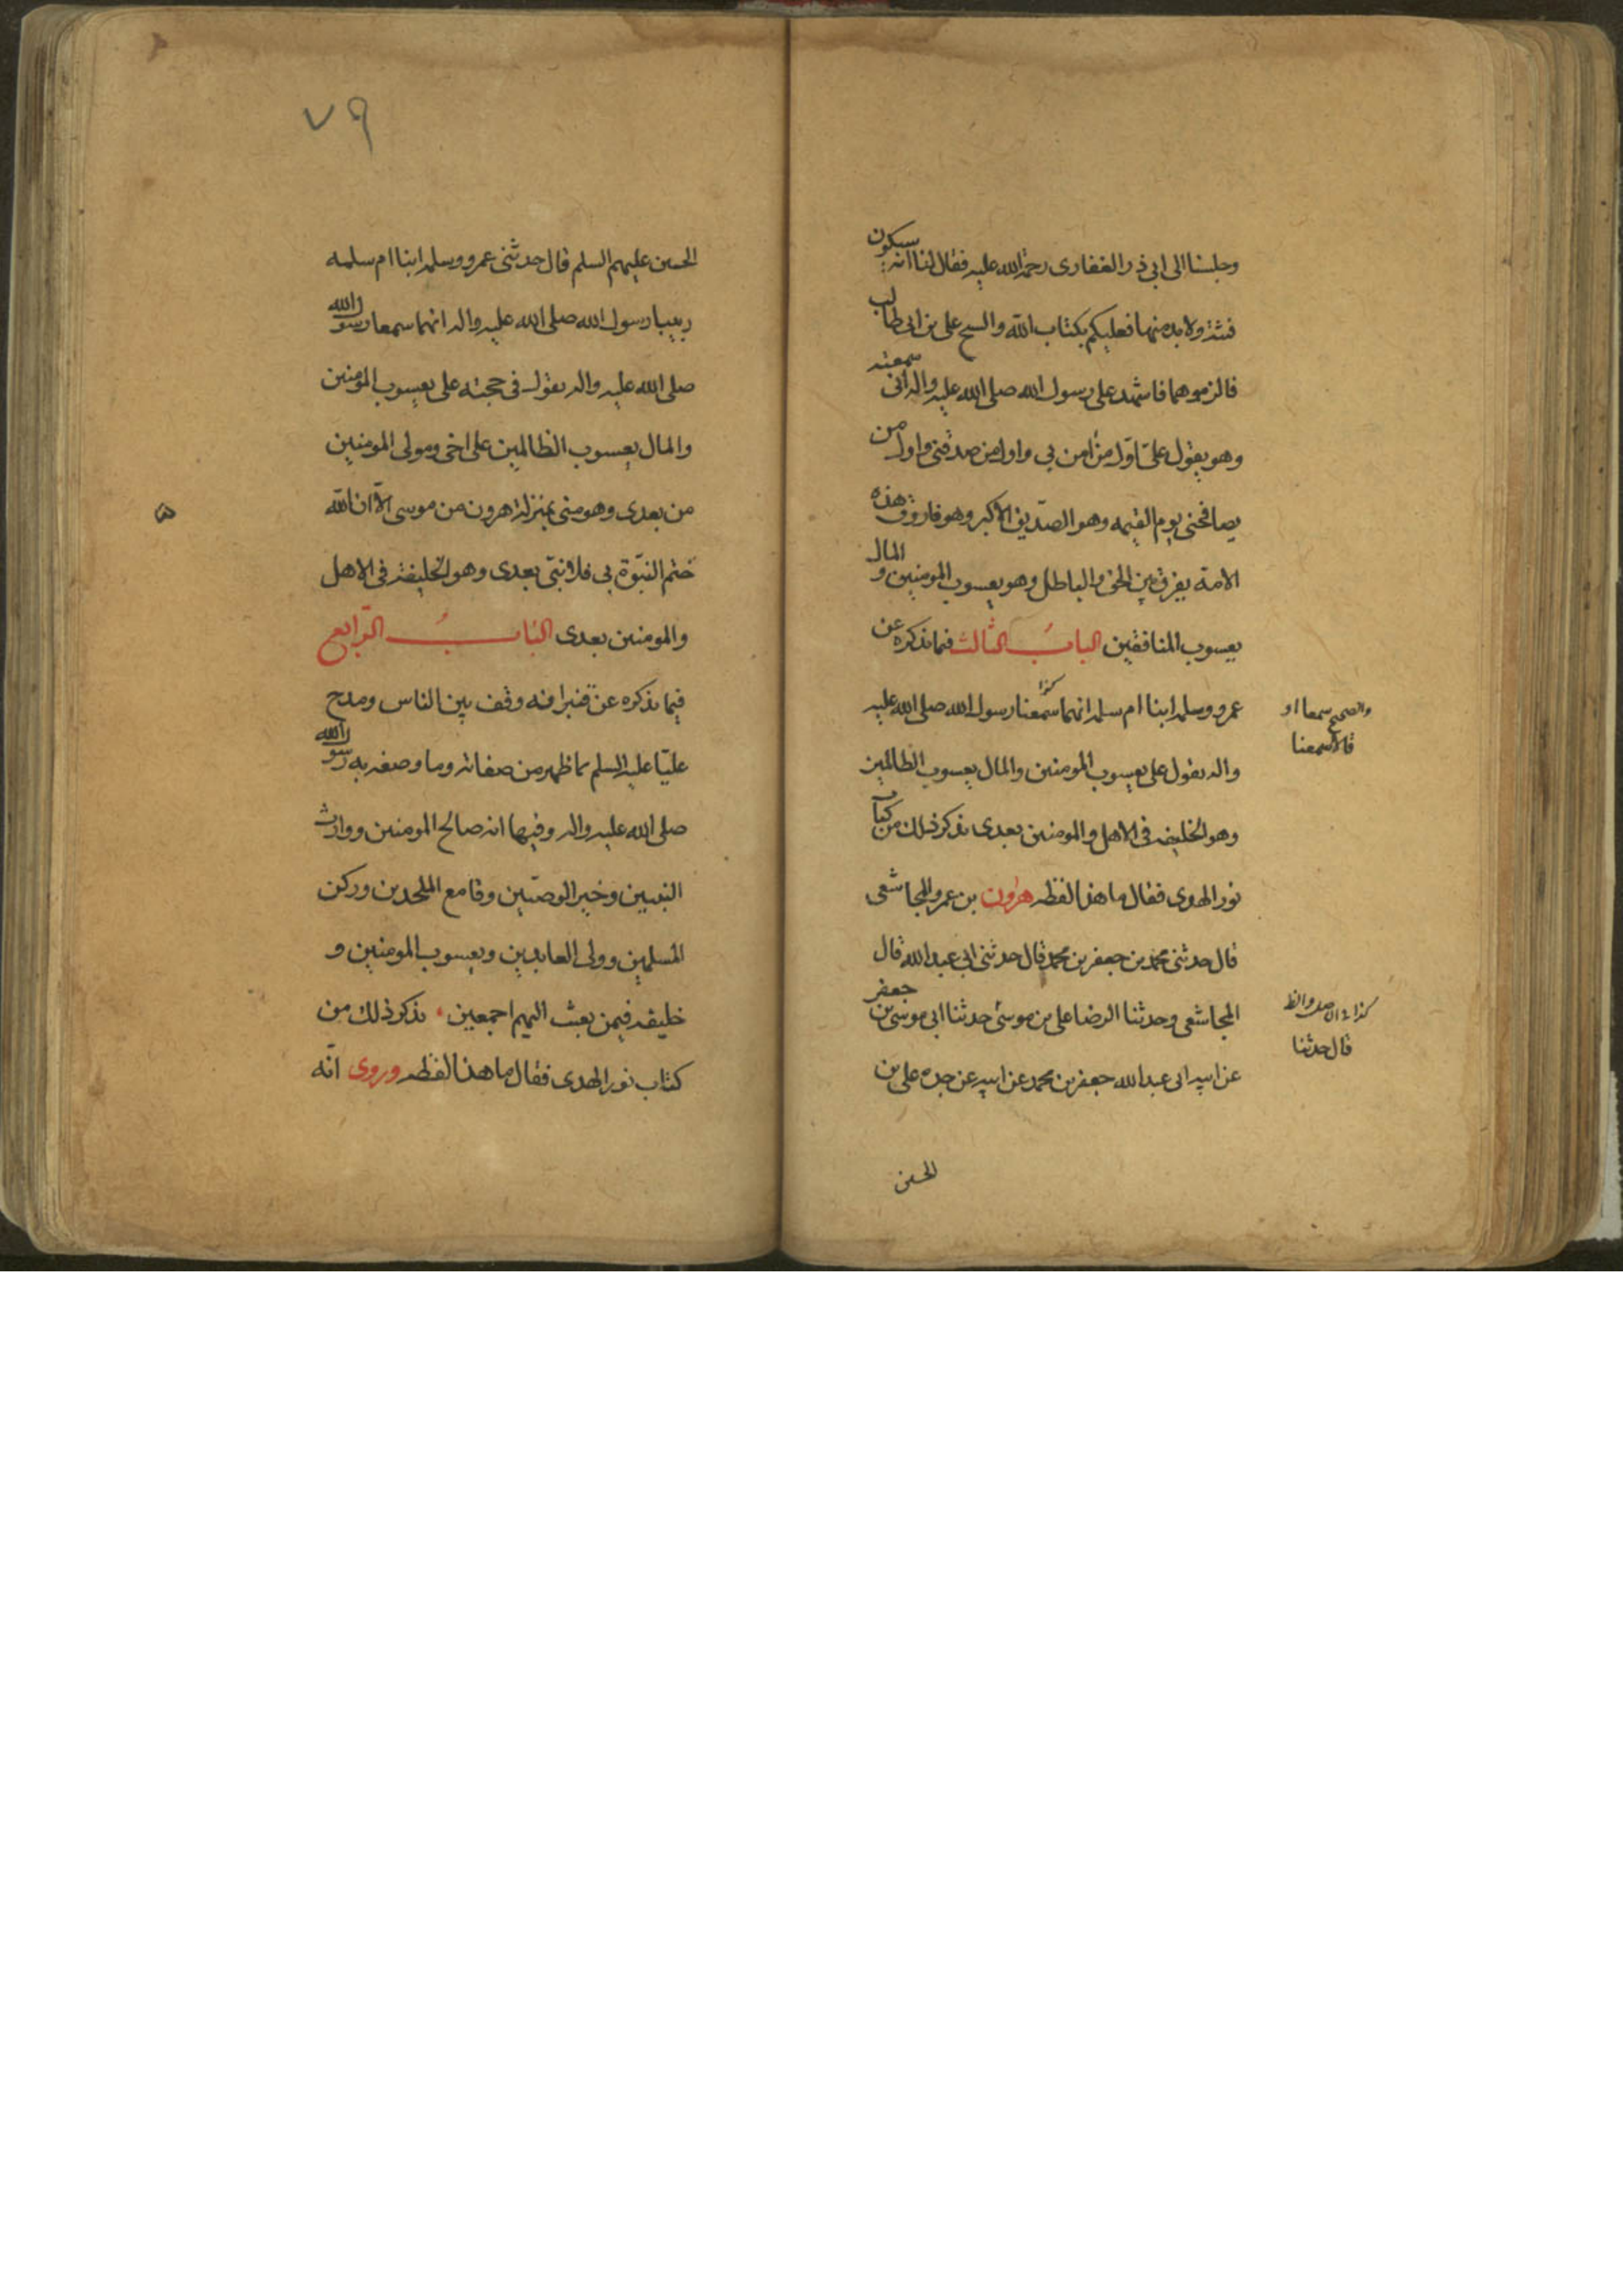 وجلسنا الى ابى ذر الغفارى رحمة الله عليه فقال لنا انه سيكون
فتنة ولا بد منها فعليكم بكتاب الله والشيخ على بن ابى طالب
فالزموهما فاشهد على رسول الله صلى الله عليه واله انى سمعته
وهو يقول علىّ اوّل من آمن بى واول من صدقنى واول من
يصافحنى يوم القيمه وهو الصّديق الاكبر وهو فاروق هذه
الامة يفرق بين الحق والباطل وهو يعسوب المومنين والمال
يعسوب المنافقين الباب الثالث فيما نذكره عن
عمرو وسلمه ابنا ام سلمه انهما سمعنا رسول الله صلى الله عليه
كذا
والصحيح سمعا او
قالا سمعنا
واله يقول على يعسوب المومنين والمال يعسوب الظالمين
وهو الخليفه فى الاهل والمومنين بعدى نذكر ذلك من كتاب
نور الهدى فقال ما هذا لفظه هرون بن عمرو المجاشعى
قال حدثنى محمد بن جعفر بن محمد قال حدثنى ابى عبد الله قال
المجاشعى وحدثنا الرضا على بن موسى حدثنا ابى موسى بن جعفر
كذا فى الاصل والظ
قال حدثنا
عن ابيه ابى عبد الله جعفر بن محمد عن ابيه عن جده على بن
الحسين
٧٩
الحسين عليهم السلم قال حدثنى عمرو وسلمه ابنا ام سلمه
ربيبا رسول الله صلى الله عليه واله انهما سمعا رسول الله
صلى الله عليه واله يقول فى حجته على يعسوب المومنين
والمال يعسوب الظالمين على اخى ومولى المومنين
من بعدى وهو منى بمنزلة هرون من موسى الّا ان الله
ختم النبّوة بى فلا نبىّ بعدى وهو الخليفة فى الاهل
والمومنين بعدى الباب الرّابع
فيما نذكره عن قنبر انه وقف بين الناس ومدح
عليّا عليه السلم بما ظهر من صفاته وما وصفه به رسول الله
صلى الله عليه واله وفيها انه صالح المومنين ووارث
النبيين وخير الوصيّين وقامع الملحدين وركن
المسلمين وولى العابدين ويعسوب المومنين و
خليفه فيمن بعث اليهم اجمعين نذكر ذلك من
كتاب نور الهدى فقال ما هذا لفظه وروى انّه